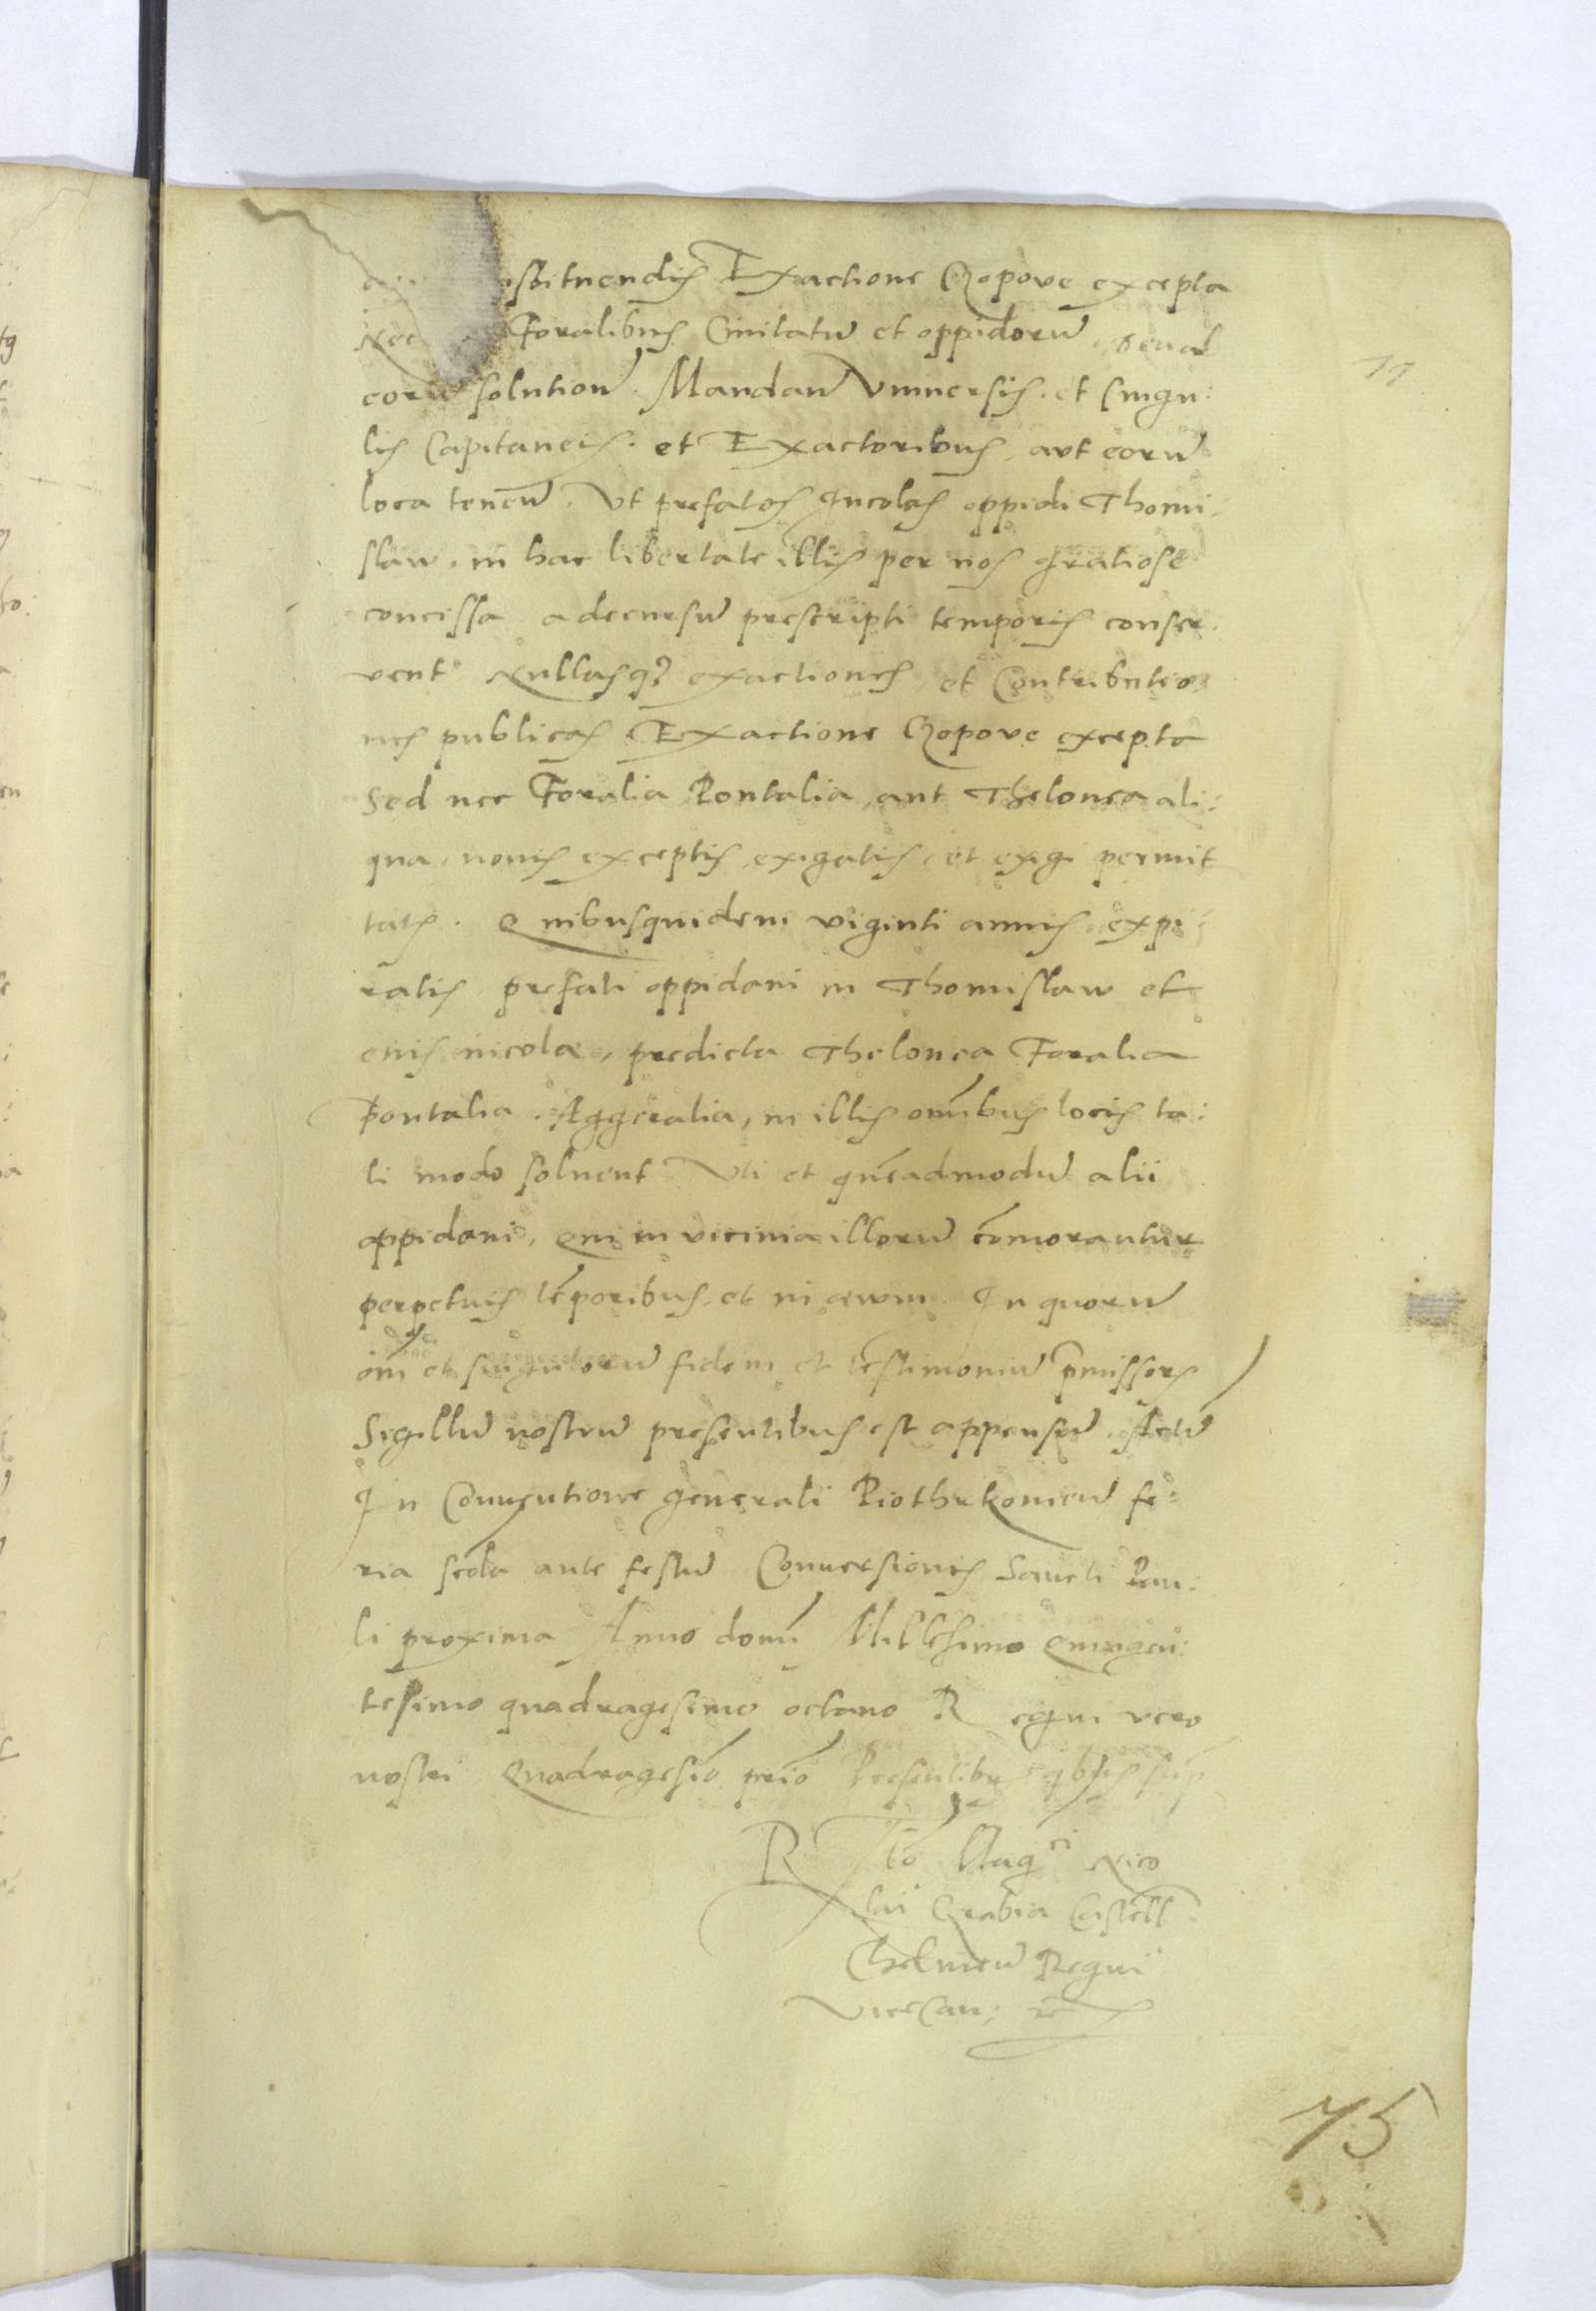 stituendis Exactione Czopove excepta
Nec Foralibus Civitatũ et oppidorũ
eorũ solutionẽ. Mandan̄ Vniversis. et singu:
lis Capitaneis. et Exactoribus, aut eorũ
loca tenen̄. Vt prefatos Incolas oppidi Thomi
slaw. in hac libertate illis per nos gratiose
concessa ad decursũ prescripti temporis conser:
vent Nullasq; exactiones, et Contributio
nes publicas Exactione Czopove excepta
Sed nec Foralia Pontalia, aut Thelonea ali:
qua, novis exceptis exigatis, et exigi permit
tatis. Quibusquidem viginti annis expi
ratis prefati oppidani in Thomislaw et
eius incolæ, predicta Thelonea Foralia
Pontalia. Aggeralia, in illis omĩbus locis ta:
li modo solvent Vti et quẽadmodũ alii
oppidani, qui in vicinia illorũ cõmorantur
perpetuis tẽporibus. et in ævum In quorũ
om̃ et singulorũ fidem et testimoniũ p̃missorũ
Sigillũ nostrũ presentibus est appensũ. Actũ
In Conventione generali Piothrkovien̄ fe:
ria scd̃a ante festũ Conversionis Sancti Pau:
li proxima Anno domĩ Millesimo Quingen:
tesimo quadragesimo octavo Regni vero
nostri Quadragesiõ priõ Presentibus
R Mag^ci Nico
lai Grabia Castell
Chelmen̄ Regni
ViceCan;
75